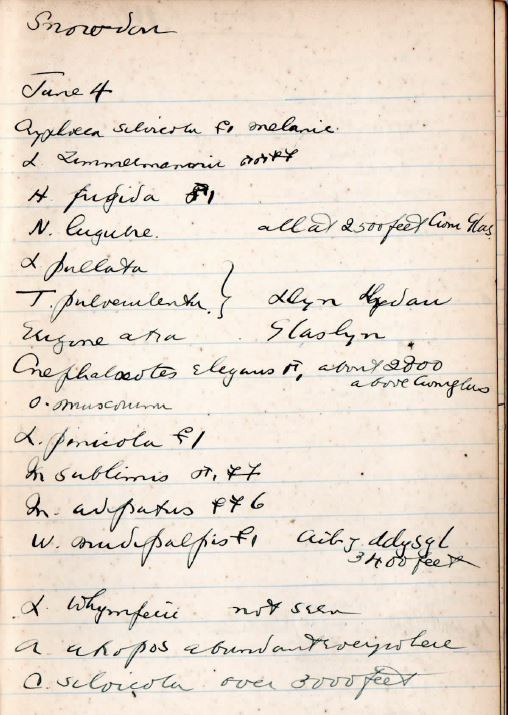 Snowdon
June 4
Cryphoeca silvicola ♀1 melanic.
L. Zimmermannii
H. frigida ♀1
N. lugubre. all at 2500 feet Cwm Glas
L pullata
T. pulverulenta. } Llyn Llydau
Erigone atra Glaslyn
Cnephalocotes elegans ♂, about 2000
above Cwmglas
O. muscorum
L. pinicola ♀1
M sublimis
M. adipatus ♀♀ 6
W. nudipalpis ♀1 Crib y ddysgl
3400 feet
L. Whymperii not seen
A. atropos abundant everywhere
C. silvicola over 3000 feet